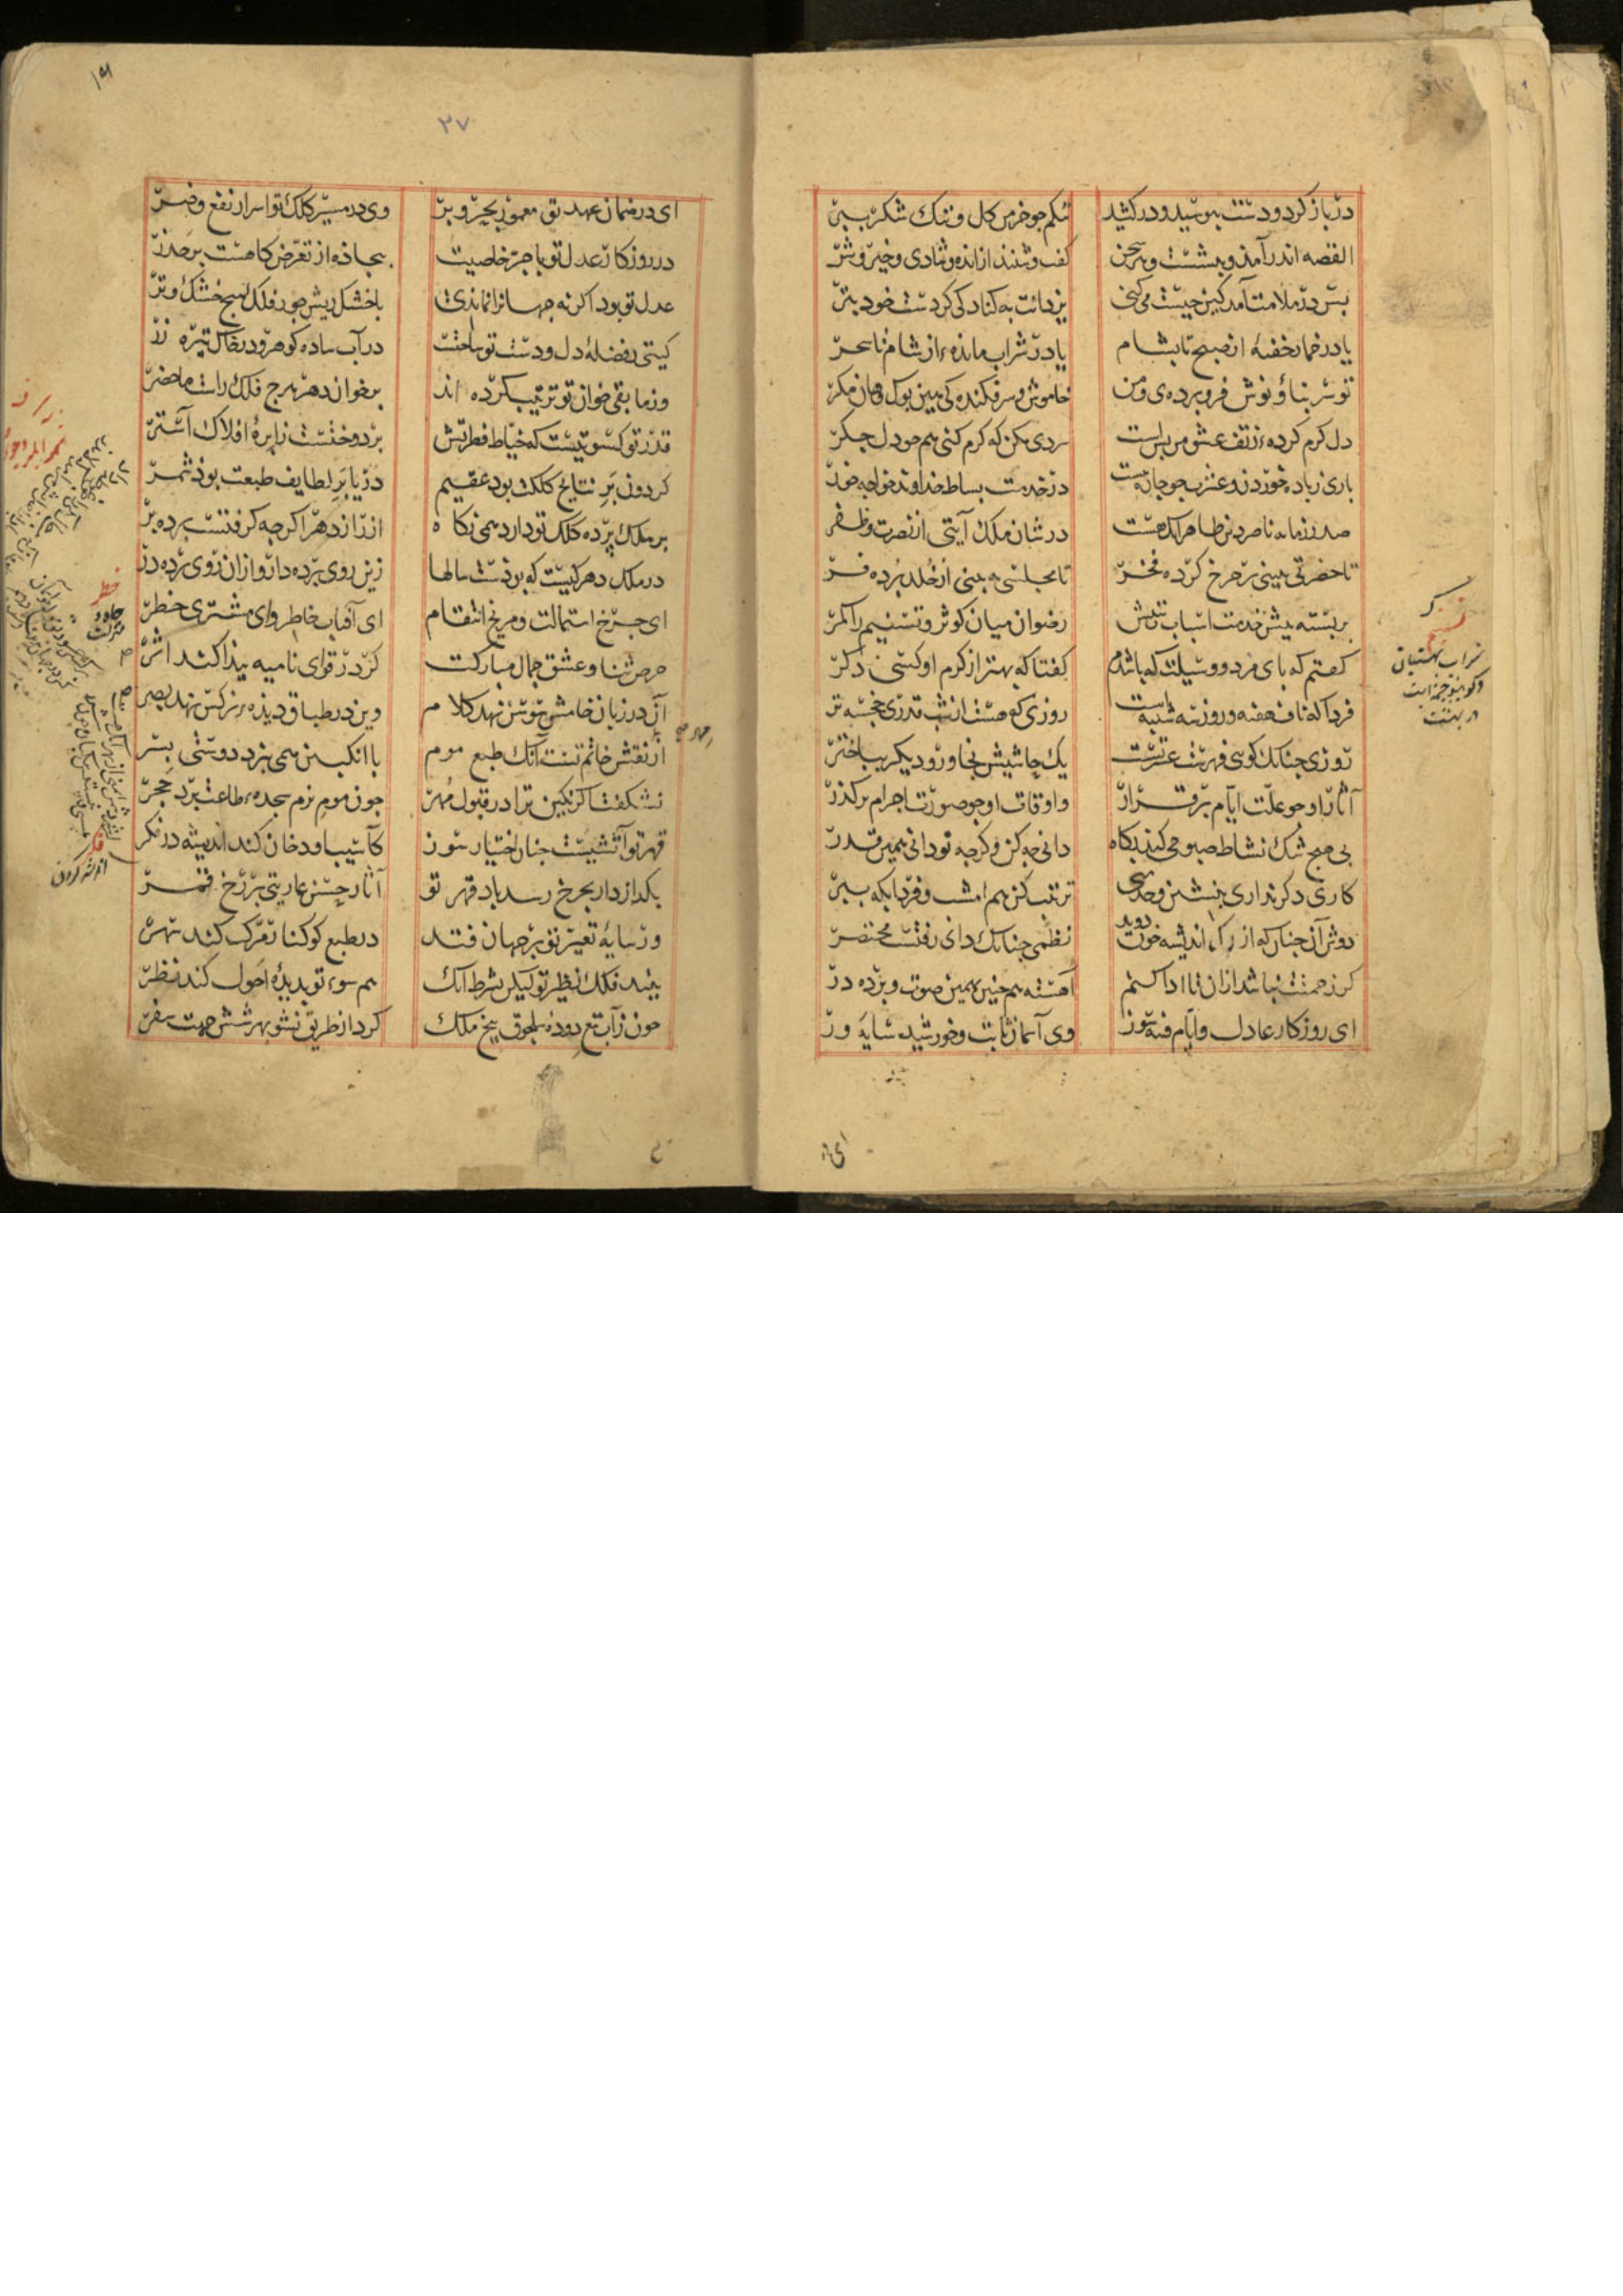 در باز کرد و دست ببوسید و در کشید
تنگم چو خرمن گل و تنگ شکر ببر
القصه اندر آمد و بنشست و هر سخن
گفت و شنید از انده و شادی و خیر و شر
پس در ملامت آمد کین چیست می کنی
یزدانت به کناد که کردست خود بتر
یا در خمار خفتهٔ از صبح تا بشام
یا در شراب مانده‌ء از شام تا سحر
تو سر بناؤ نوش فرو برده‌ی و من
خاموش و سر فکنده که هین بوک و هان مکر
دل کرم کرده‌ء ز تف عشق من بس است
سردی مکن که کرم کنی هم جو دل جکر
باری ز باده خوردن و عشرت جو جاره نیست
در خدمت بساط خداوند خواجه خور
صدر زمانه ناصر دین طاهر آنک هست
در شان ملک آیتی از نصرت و ظفر
تا حضرتی ببینی بر جرخ کرده فخر
تا مجلسی ببینی از خلد برده فر
بربسته پیش خدمت اسباب نزلش
رضوان میان کوثر و تسنیم را کمر
کفتم که پای مرد و وسیلت که باشدم
کفتا که بهتر از کرم او کسی دکر
فردا که ناف هفته و روز سه شنبه است
روزی که هست از شب قدری خجسته تر
روزی جنانک کویی فهرست عشرتست
یک حاشیتش بخاور و دیکر بباختر
آثار او جو علت ایام بر قرار
و اوقات او جو صورت اجرام بر کذر
بی هیج شک نشاط صبوحی کند بکاه
دانی جه کن و کرجه تو دانی همین قدر
کاری دکر نداری بنشین و خدمتی
ترتیب کن هم امشب و فردا بکه ببر
دوش آن جنان که از رک اندیشه خون دوید
نظمی جنانک دانی رفتست مختصر
کر زحمتت نباشد از ان تا ادا کنم
آهسته هم جنین بهمین صوت و پرده در
ای روزکار عادل و ایام فتنه سوز
وی آسمان ثابت و خورشید سایه ور
شراب بهشتیان
و کویند جشمه ایست
در بهشت
ای در
۳۷
ای در ضمان عهد تو معمور بحر و بر
وی در مسیر کلک تو اسرار نفع و ضر
در روزکار عدل تو با جبر خاصیت
بیجاذه از تعرض کاهست بر حذر
عدل تو بود اکر نه جهان را نماندی
با خشک ریش جور فلک هیج خشک و تر
کیتی ز فضلهٔ دل و دست تو ساختست
در آب ساده کوهر و در خاک تیره زر
وز ما بقی خوان تو ترتیب کرده اند
بر خوان دهر هرج فلک راست ما حضر
قدر تو کسوتیست که خیاط فطرتش
بردوختست ز ابرهٔ افلاک آستر
کردون بر نتایج کلکت بود عقیم
دریا بر لطایف طبعت بود شمر
بر ملک پرده کلک تو دارد همی نکاه
از راز دهر اکر جه کرفتست پرده بر
در ملک دهر کیست که بوذست سالها
زین روی پرده دار و از ان روی پرده در
ای جرخ استمالت و مریخ انتقام
ای آفتاب خاطر و ای مشتری خطر
حرص ثنا و عشق جمال مبارکت
کر در قوای نامیه پیذا کند اثر
آن در زبان خامش سوسن نهد کلام
وین در طباق دیذهٔ نرکس نهد بصر
از نقش خاتم تست آنک طبع موم
با انکبین همی نبرد دوستی بسر
نشکفت اکر نکین ترا در قبول مهر
جون موم نرم سجده‌ء طاعت برد حجر
قهر تو آتشیست جنان اختیار سوز
کآسیب او دخان کند اندیشه در فکر
بکدازد ار بجرخ رسد باد قهر تو
آثار حسن عاریتی بر رخ قمر
ور سایهٔ تغیر تو بر جهان فتد
در طبع کوکنار تحرک کند سهر
بیند فلک نظیر تو لیکن بشرط آنک
هم سوء تو بدیدهٔ احول کند نظر
جون ز آب تیغ دودهٔ سلجوق بیخ ملک
کرد از طریق نشو بهر شش جهت سفر
خطر
جاه و
منزلت
فکر
اندیشه کردن